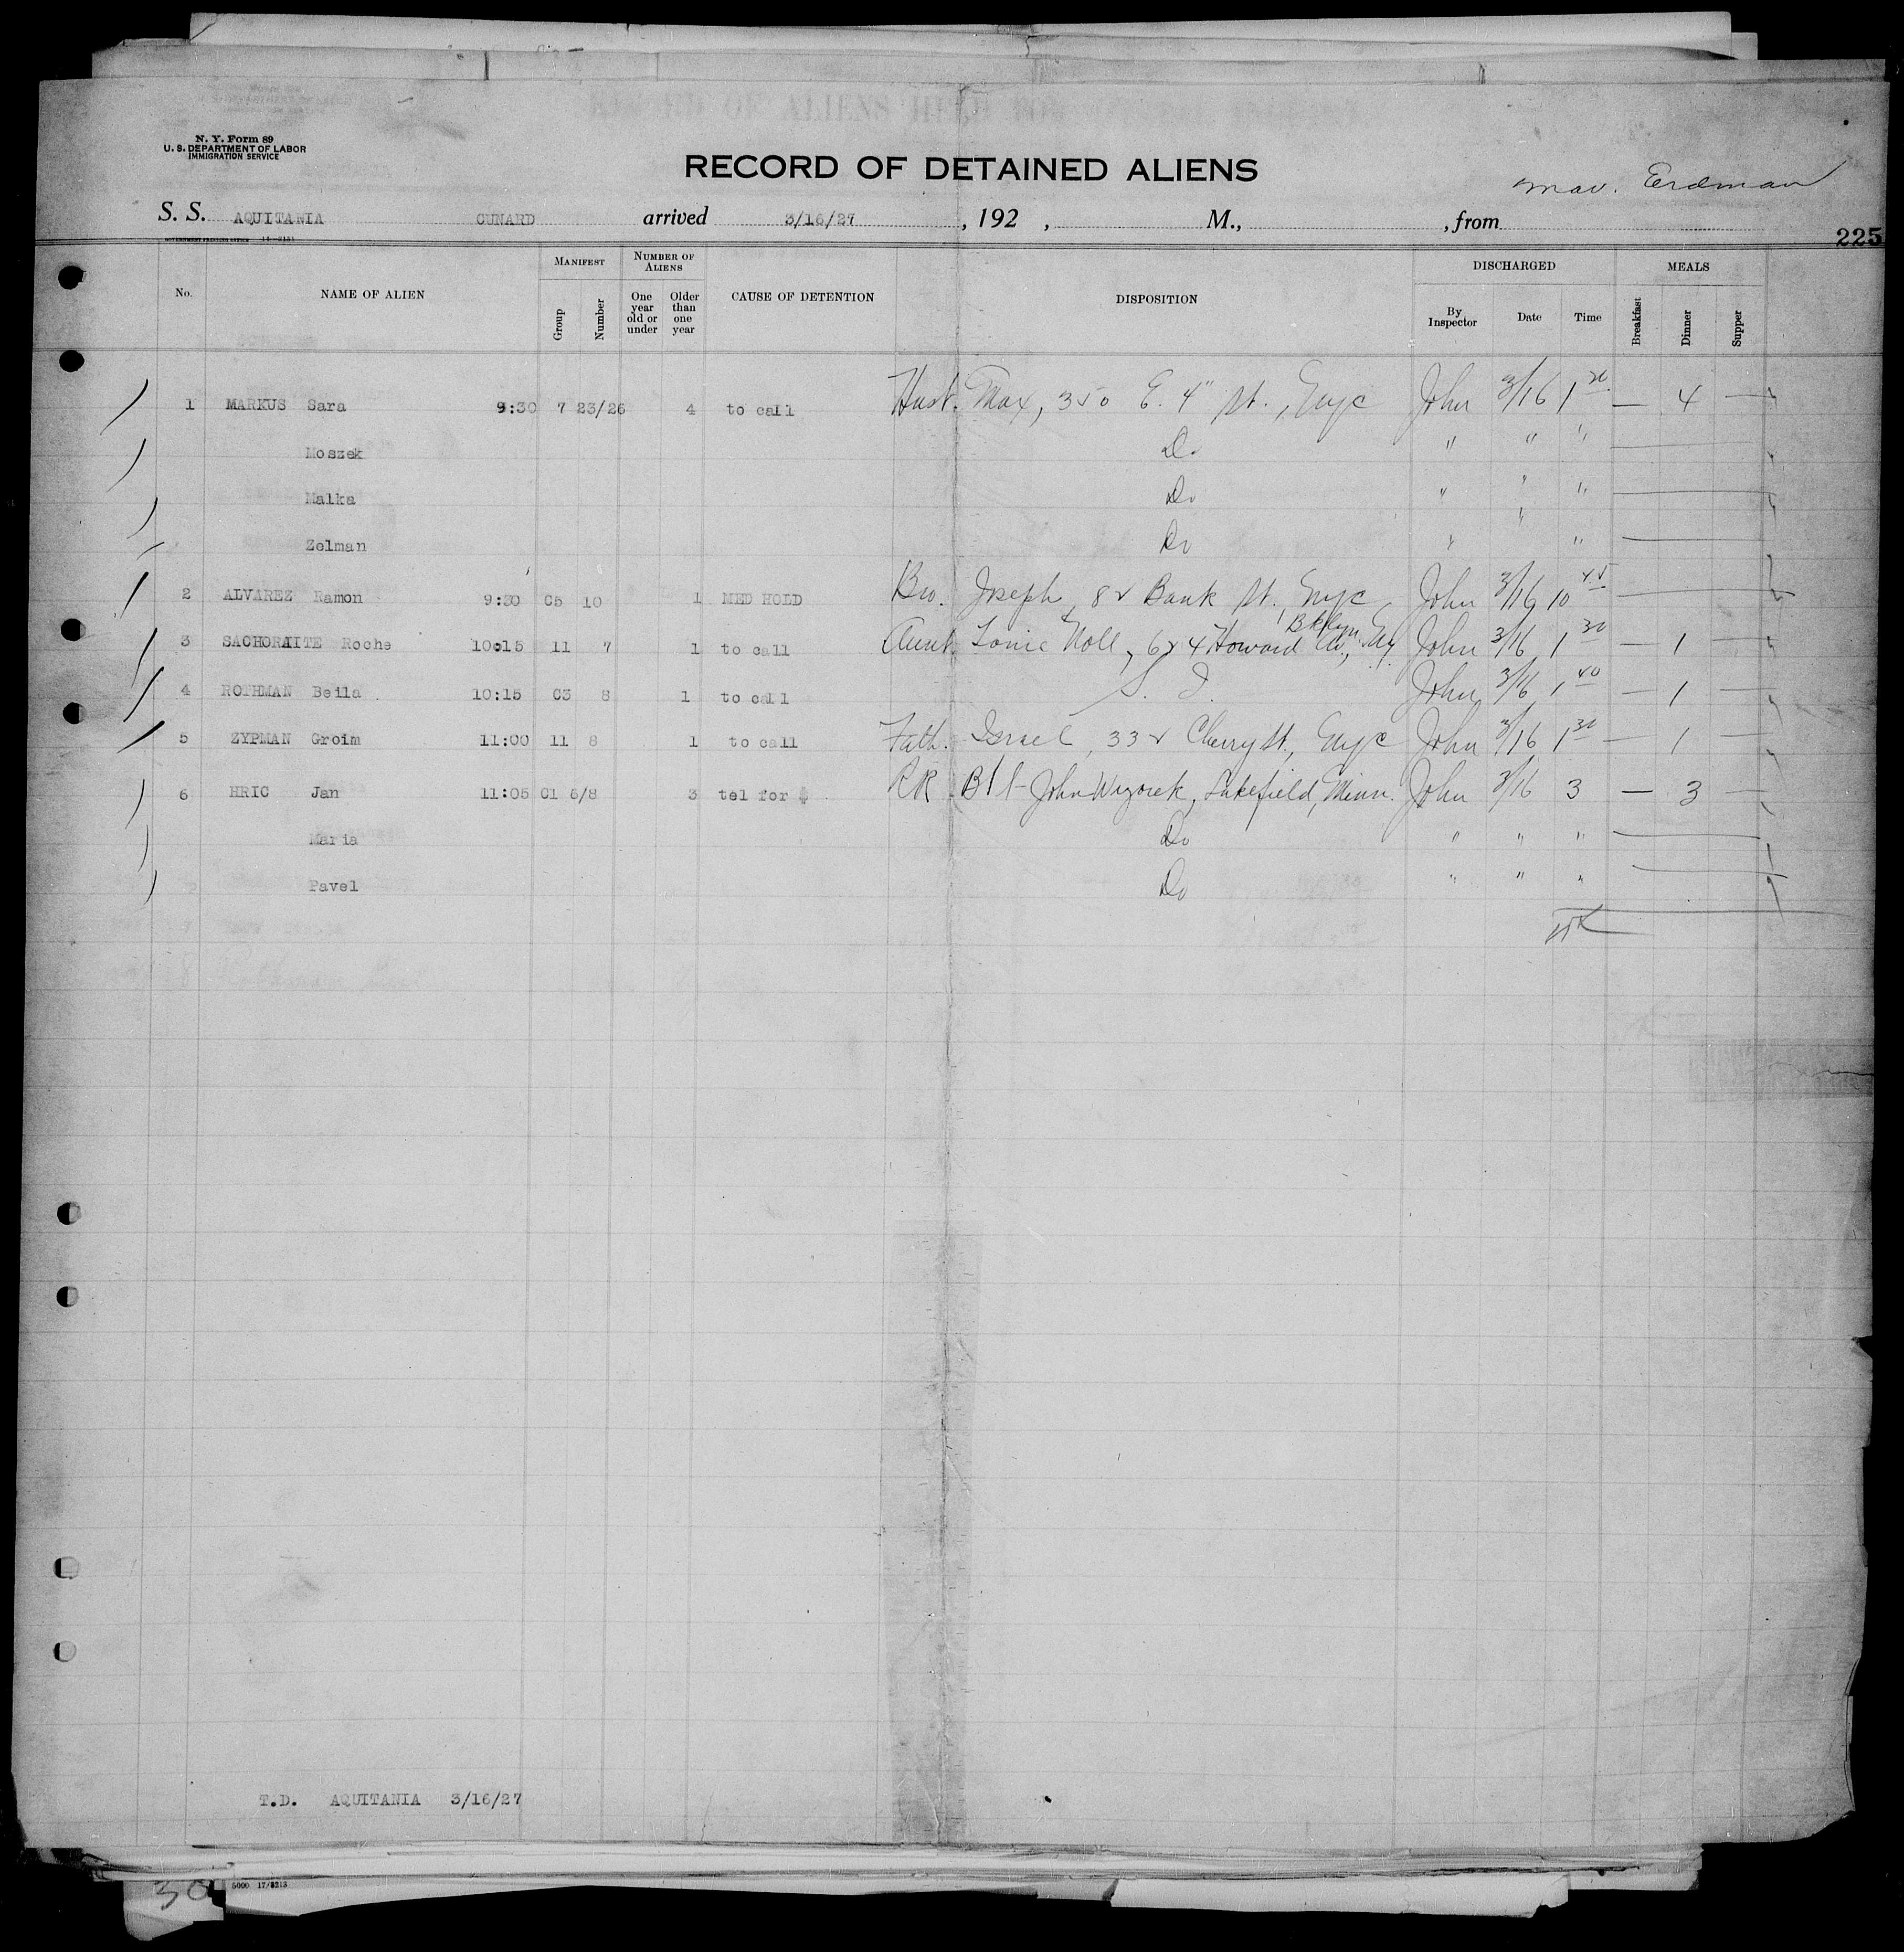 N. Y. Form 89
U. S. DEPARTMENT OF LABOR
IMMIGRATION SERVICE
RECORD OF DETAINED ALIENS
Erdman
S. S. AQUITANIA CUNARD arrived 3/16/27, 192 , M., , from
225
No. NAME OF ALIEN MANIFEST NUMBER OF ALIENS CAUSE OF DETENTION DISPOSITION DISCHARGED MEALS
Group Number One year old or under Older than one year By Inspector Date Time Breakfast Dinner Supper
1 MARKUS Sara 9:30 7 23/26 4 to call Husb. Max, 350 E. 4" St., NYC John 3/16 1 20 — 4 —
Moszek Do " " "
Malka Do " " "
Zelman Do " " "
2 ALVAREZ Ramon 9:30 C5 10 1 MED HOLD Bro. Joseph, 82 Bank St. NYC John 3/16 10 45
3 SACHORAITE Roche 10:15 11 7 1 to call Aunt Noll, 624 Howard Av, Bklyn. NY John 3/16 1 30 — 1 —
4 ROTHMAN Beila 10:15 C3 8 1 to call S. I. John 3/16 1 40 — 1 —
5 ZYPMAN Groim 11:00 11 8 1 to call Fath. Israel, 332 Cherry St., NYC John 3/16 1 30 — 1 —
6 HRIC Jan 11:05 C1 6/8 3 tel for $ RR John Lakefield, Minn. John 3/16 3 — 3 —
Maria Do " " "
Pavel Do " " "
T.D. AQUITANIA 3/16/27
30
5000 17/3213